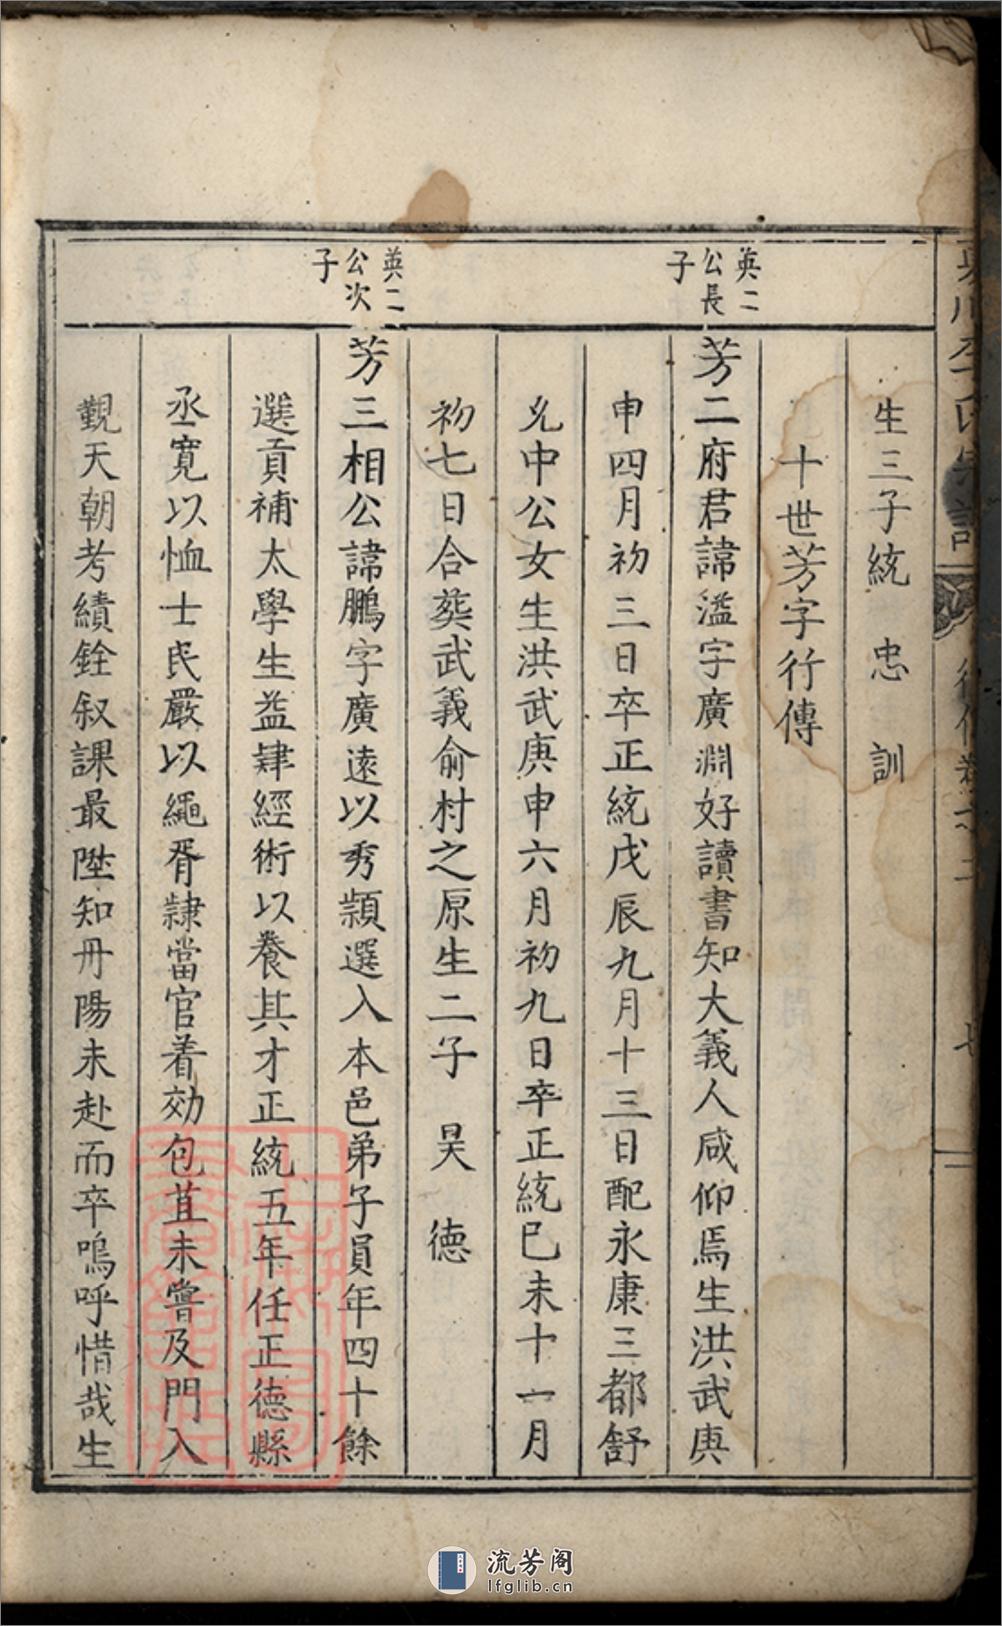 生三子統　忠　訓
十世芳字行傳
英二
公長
子
芳二府君諱溢字廣淵好讀書知大義人咸仰焉生洪武庚
申四月初三日卒正統戊辰九月十三日配永康三都舒
允中公女生洪武庚申六月初九日卒正統巳未十一月
初七日合葬武義俞村之原生二子　昊　德
英二
公次
子
芳三相公諱鵬字廣遠以秀頴選入本邑弟子員年四十餘
選貢補太學生益肄經術以養其才正統五年任正德縣
丞寬以恤士民嚴以繩胥隸當官着効包苴未嘗及門入
覲天朝考績銓叙課最陞知丹陽未赴而卒嗚呼惜哉生
流芳阁
lfglib.cn